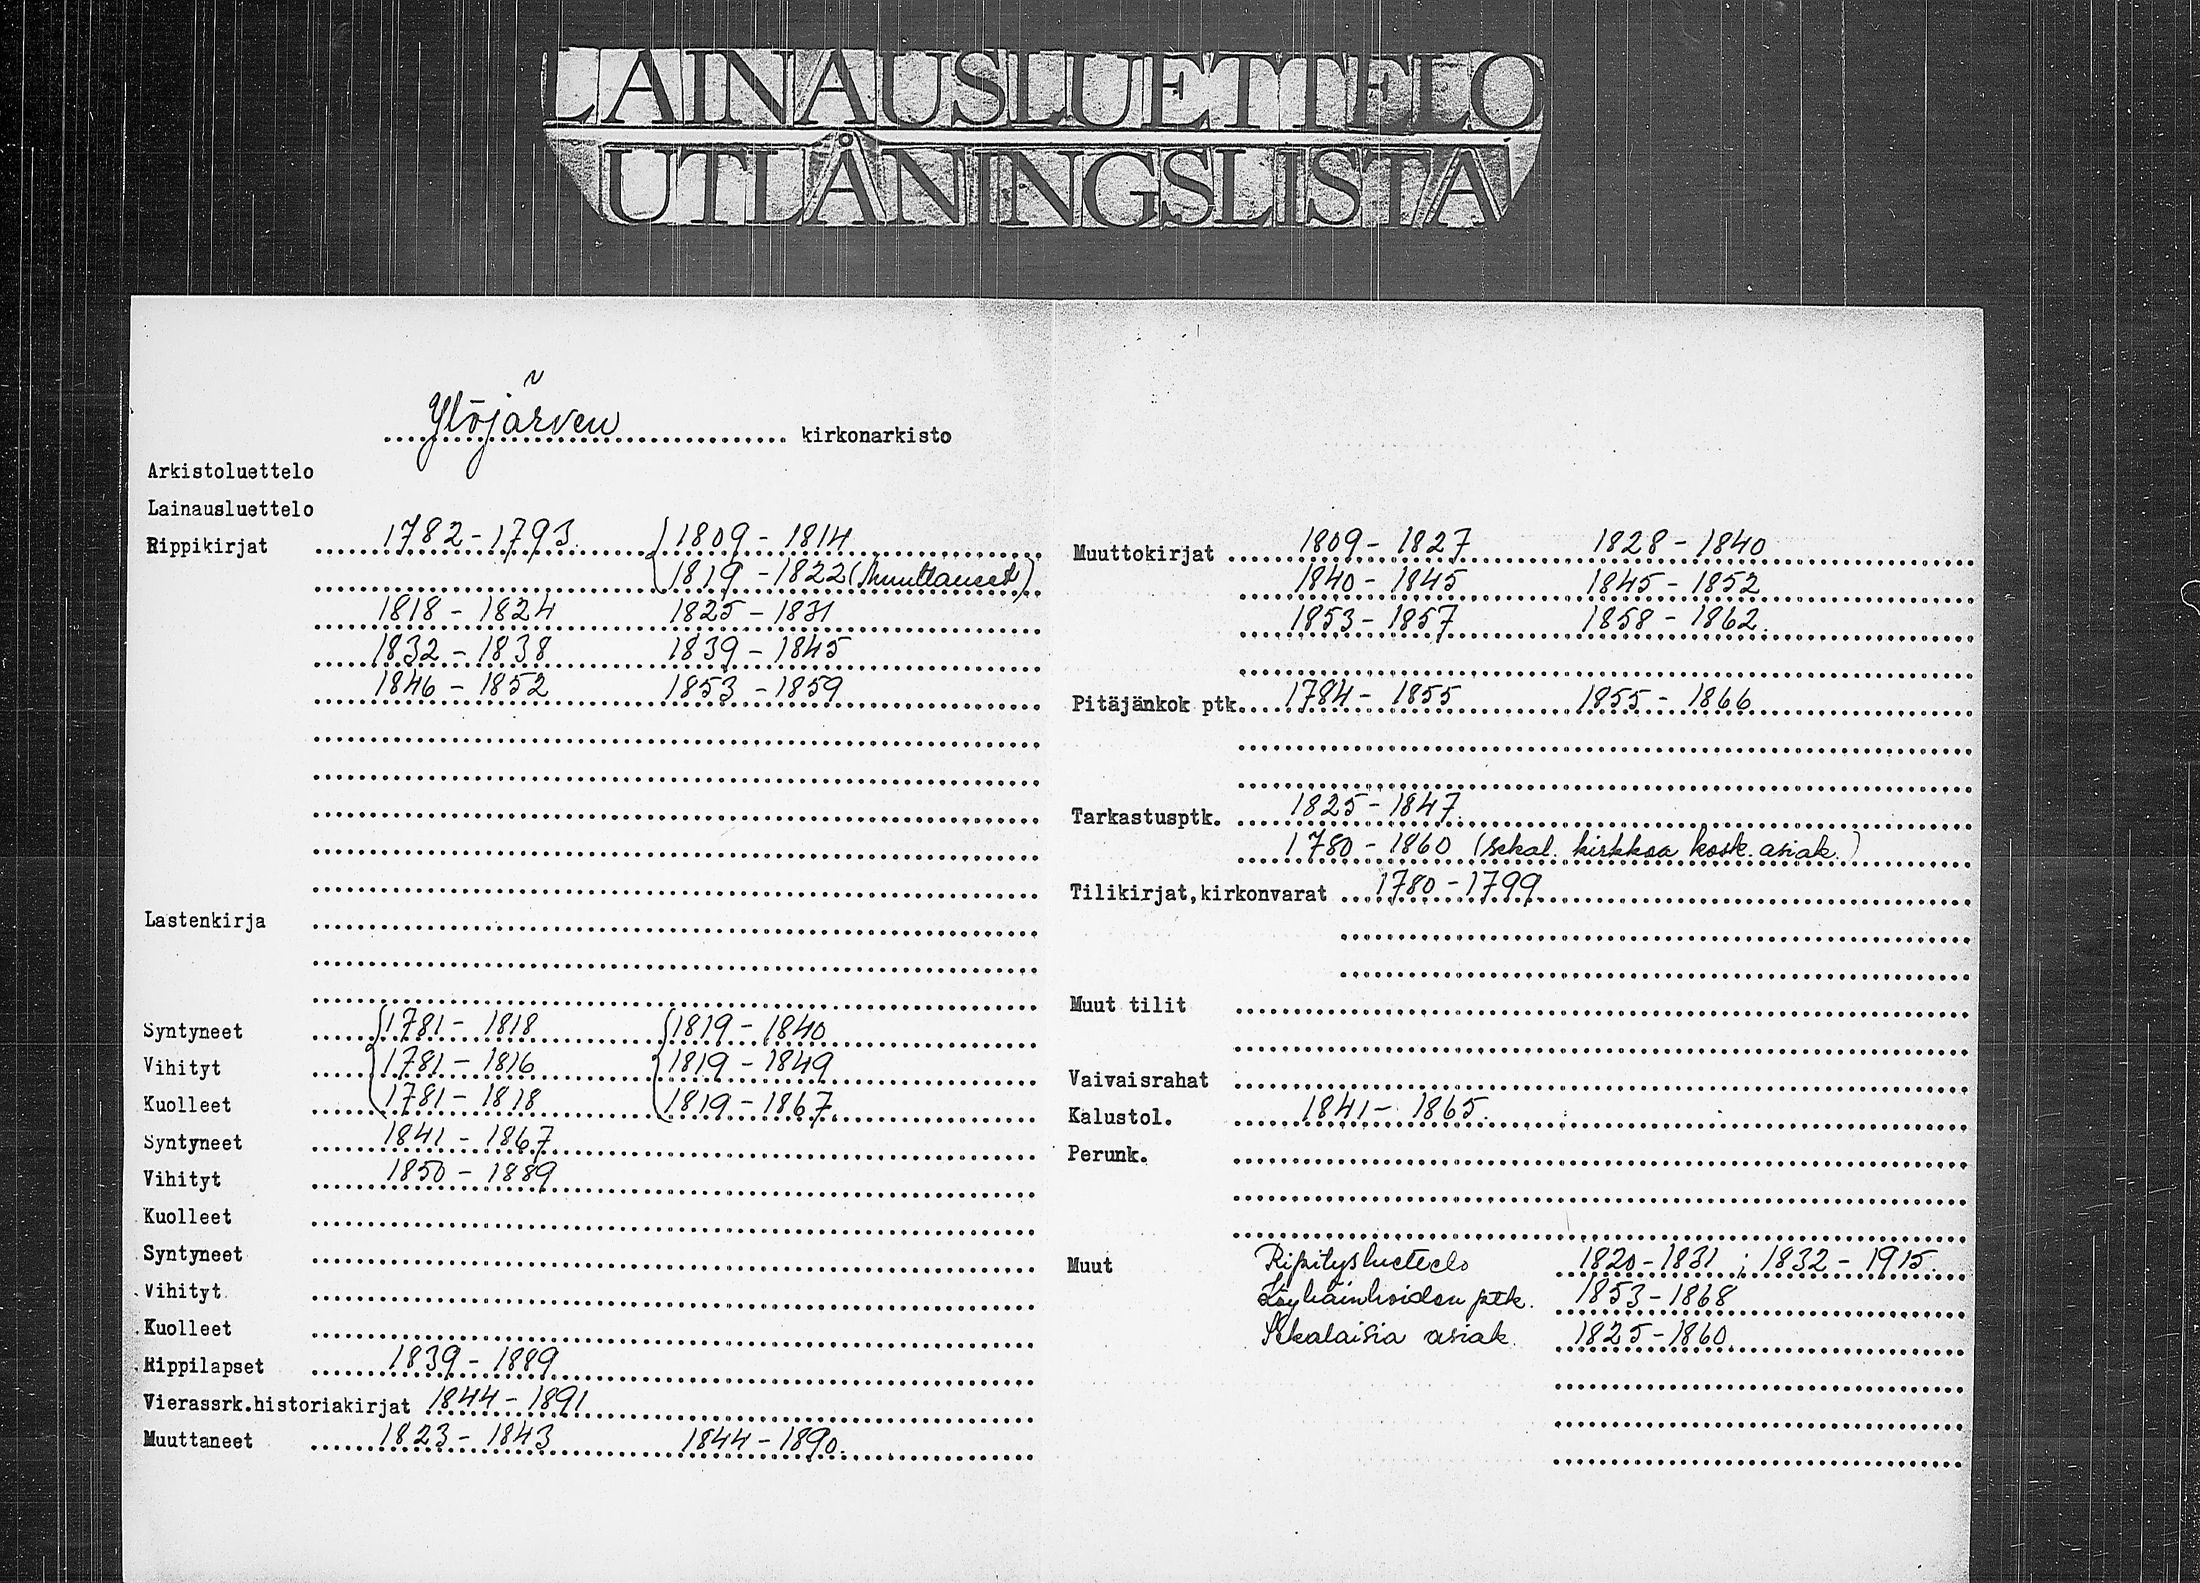 LAINAUSLUETTELO
UTLÅNINGSLISTA
Ylöjärven kirkonarkisto
Arkistoluettelo
Lainausluettelo
Rippikirjat 1782-1793. 1809-1814
1819-1822 (Muuttaneet)
1818-1824 1825-1831
1832-1838 1839-1845
1846-1852 1853-1859
Lastenkirja
Syntyneet 1781-1818 1819-1840
Vihityt 1781-1816 1819-1849
Kuolleet 1781-1818 1819-1867.
Syntyneet 1841-1867
Vihityt 1850-1889
Kuolleet
Syntyneet
Vihityt
Kuolleet
Rippilapset 1839-1889
Vierassrk.historiakirjat 1844-1891
Muuttaneet 1823-1843 1844-1890.
Muuttokirjat 1809-1827 1828-1840
1840-1845 1845-1852
1853-1857 1858-1862.
Pitäjänkok ptk. 1784-1855 1855-1866
Tarkastusptk. 1825-1847.
1780-1860 (sekal. kirkkoa kosk. asiak.)
Tilikirjat,kirkonvarat 1780-1799
Muut tilit
Vaivaisrahat
Kalustol. 1841-1865.
Perunk.
Muut Ripitysluettelo 1820-1831 ; 1832-1915.
Köyhäinhoidon ptk. 1853-1868
Sekalaisia asiak. 1825-1860.